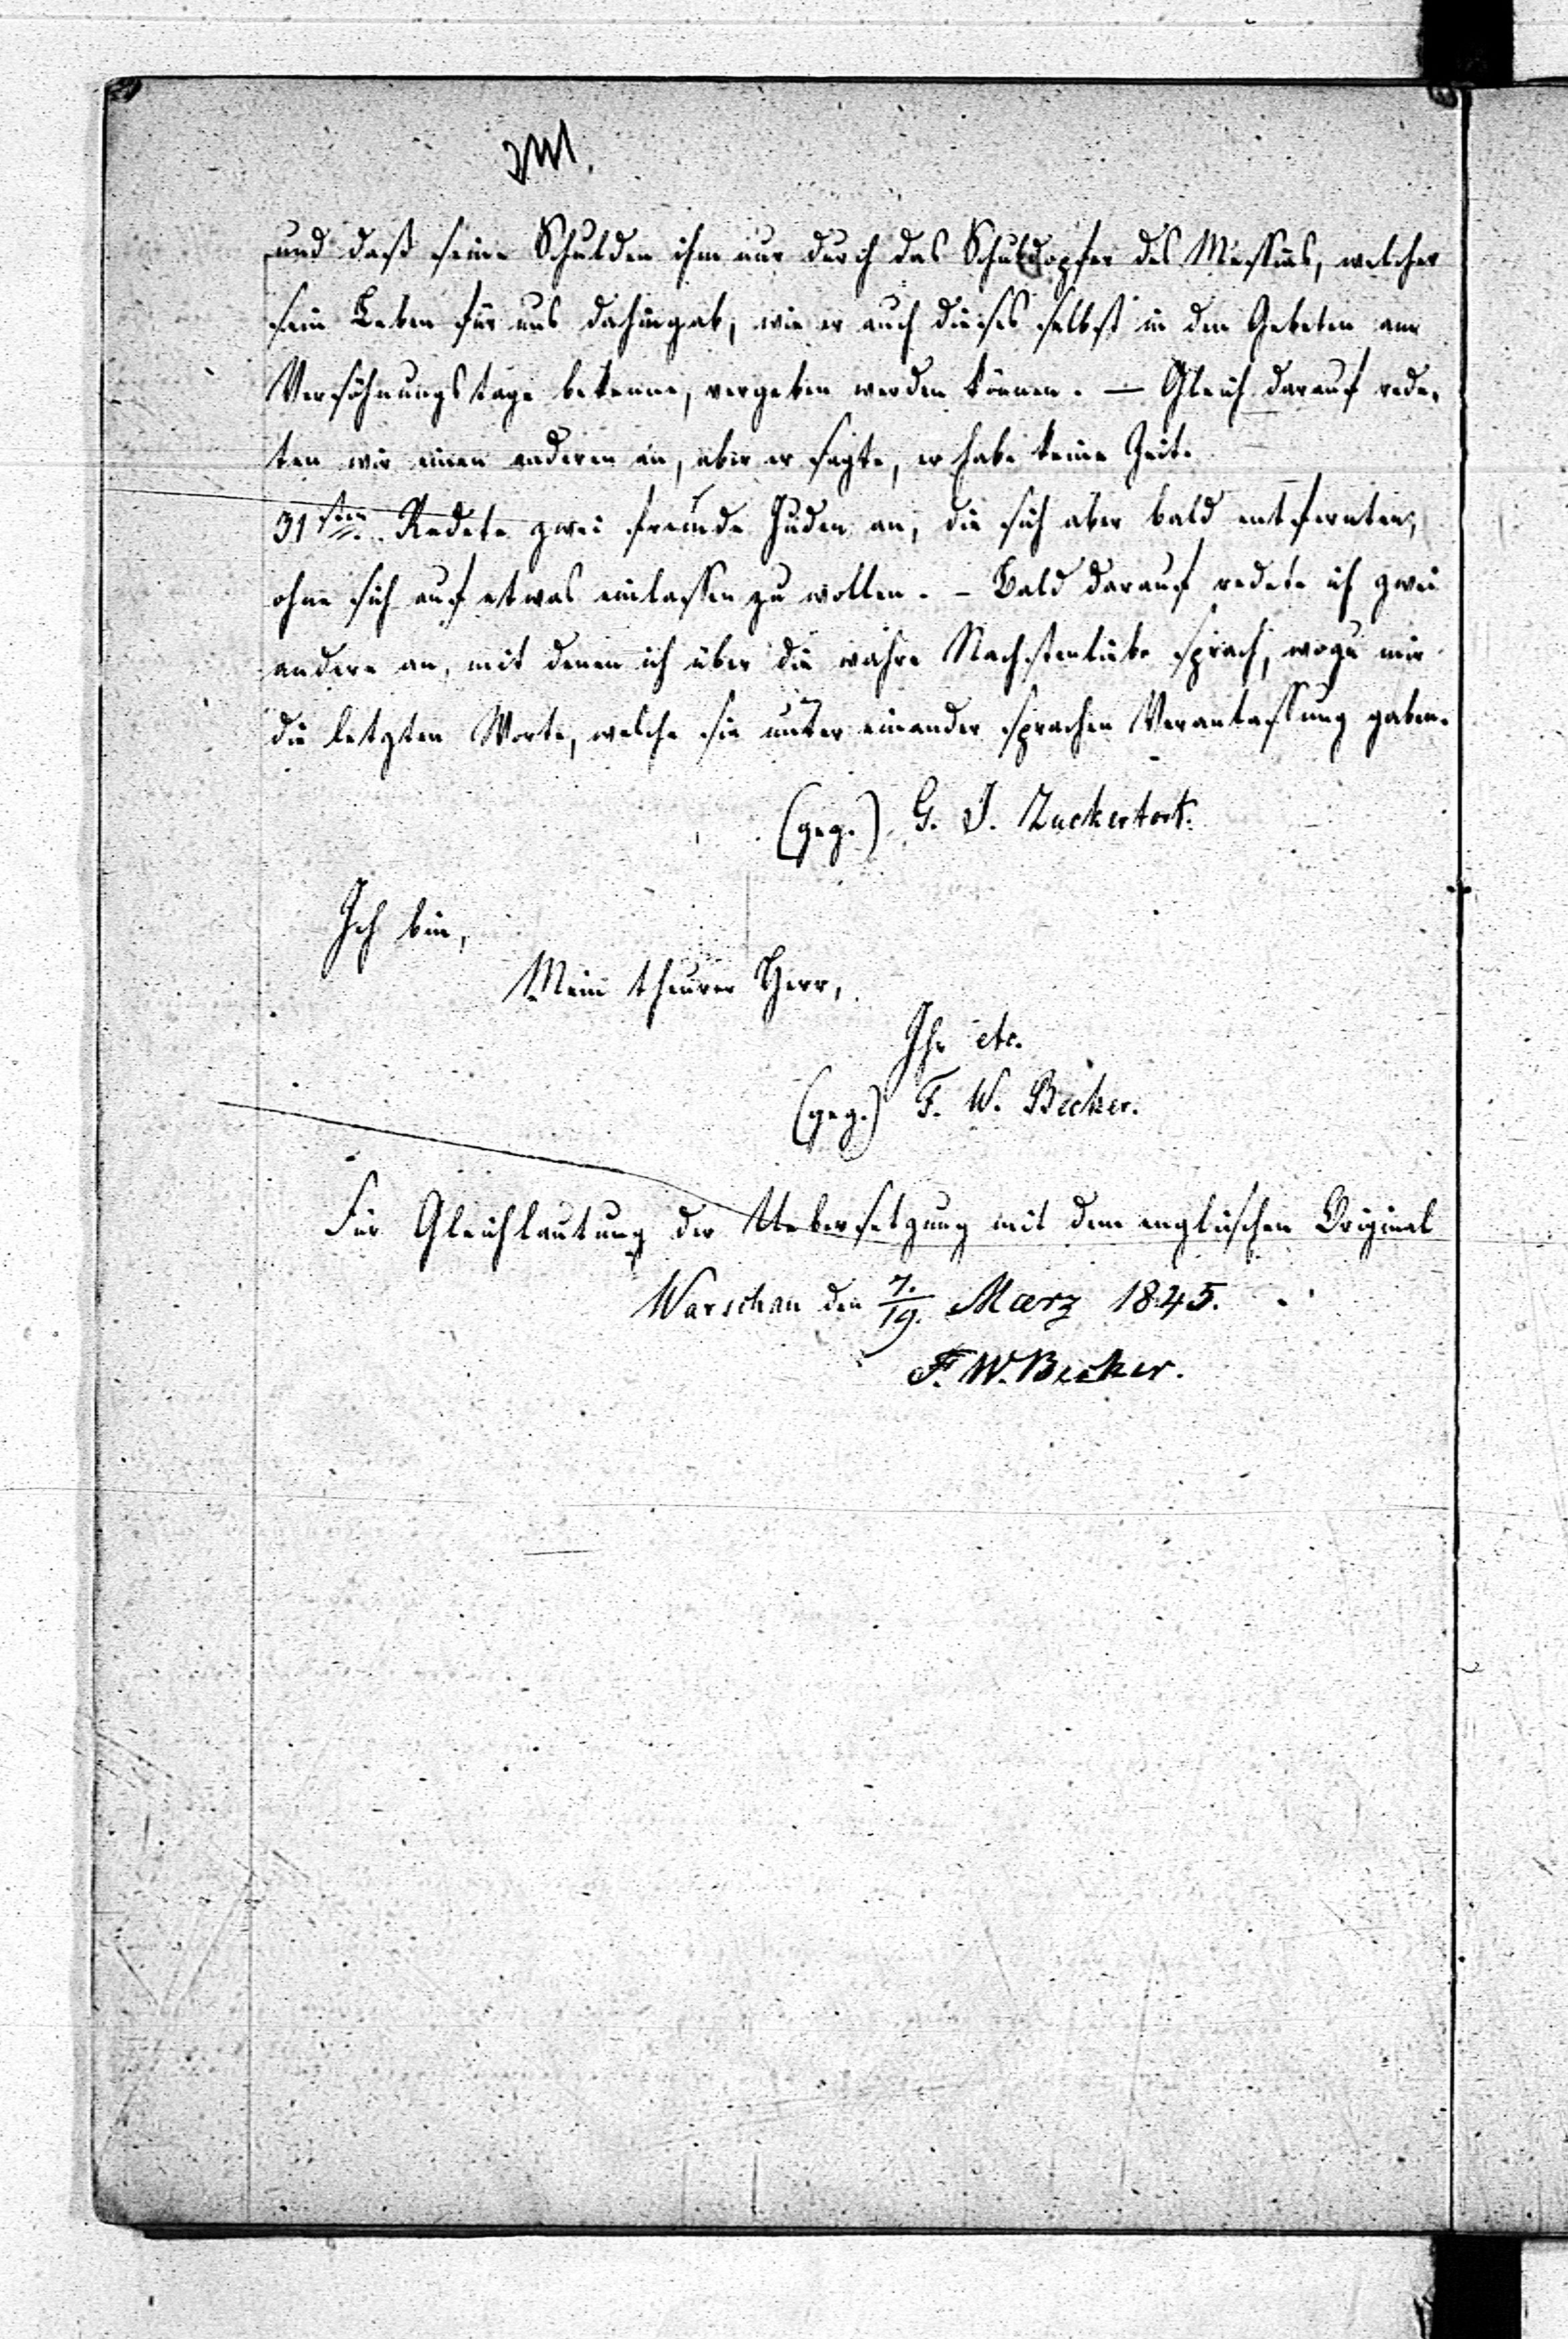 und daß seine Schulden ihm nur durch das Schuldopfer des Messias, welcher
sein Leben für uns dahingab, wie er auch dieses selbst in den Gebeten am
Versöhnungstage bekenne, vergeben werden können. — Gleich darauf rede-
ten wir einen anderen an, aber er sagte, er habe keine Zeit.
31sten. Redete zwei fremde Juden an, die sich aber bald entfernten,
ohne sich auf etwas einlassen zu wollen. – Bald darauf redete ich zwei
andere an, mit denen ich über die wahre Nächstenliebe sprach, wozu mir
die letzten Worte, welche sie unter einander sprachen Veranlassung gaben.
(gez.) G. J. Zuckertort.
Ich bin,
Mein theurer Herr,
Ihr etc.
(gez.) F. W. Becker.
Für Gleichlautung der Uebersetzung mit dem englischen Original
Warschau den 7./19. Maerz 1845.
F. W. Becker.